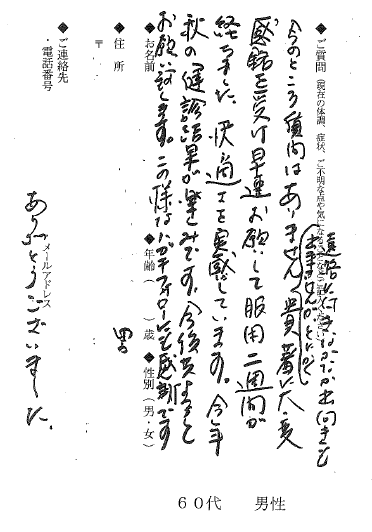 ◆ご質問(現在の体調、症状、ご不明な点や気になる
遠路に付きなかなか出向きも
出来ませんが
今のところ質問はありません。貴著に大変
感銘を受け早速お願いして服用二週間が
経ちました。快適さを実感しています。今年
秋の健診結果が楽しみです。今後共宜しく
お願い致します。この様なハガキフォローにも感謝です
ありがとうございました。
◆お名前
◆年齢( )歳
◆性別(男・女)
◆住 所
〒
◆ご連絡先
・電話番号
メールアドレス
60代 男性